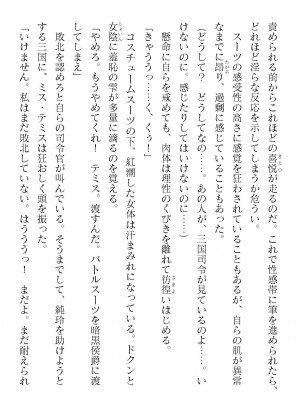 責められる前からこれほどの喜悦が走るのだ。これで性感帯に筆を進められたら、
どれほど淫らな反応を示してしまうか危うい。
スーツの感受性の高さに感覚を狂わされていることもあるが、自らの肌が異常
なまでに昂り、過剰に感じていることもたしかだ。
(どうして? どうしてなの……。あの人が、三国司令が見ているのよ……。い
けないのに。感じたりしてはいけないのに……)
懸命に自らを戒めても、肉体は理性のくびきを離れて彷徨いはじめる。
「きゃううっ……く、くぅ!」
コスチュームスーツの下、紅潮した女体は汗まみれになっている。ドクンと
女陰に羞恥の雫が多量に滴るのを覚える。
「やめろ。もうやめてくれ! テミス。渡すんだ。バトルスーツを暗黒侯爵に渡
してしまえ」
敗北を認めろと自らの司令官が叫んでいる。そうまでして、純玲を助けようと
する三国に、ミス・テミスは狂おしく頭を振った。
「いけません。私はまだ敗北していない。はううう! まだよ。まだ耐えられ